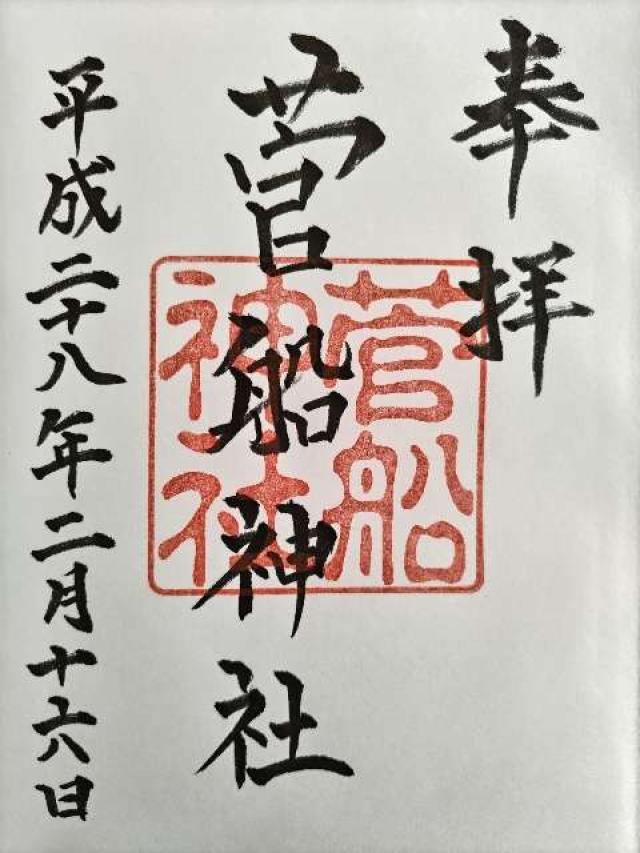 奉拝
菅船神社
菅船
神社
平成二十八年二月十六日